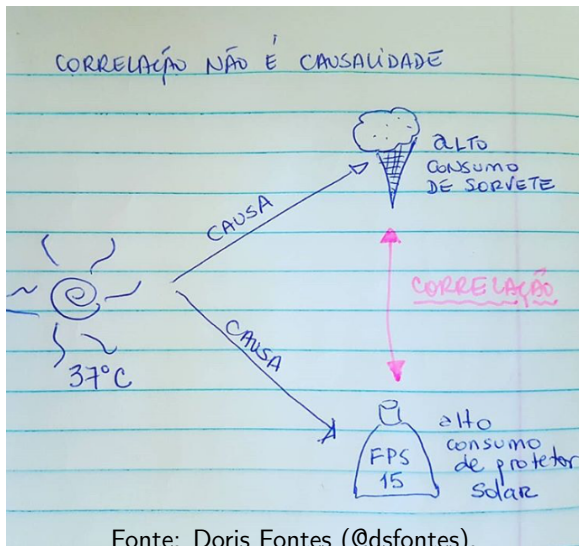 CORRELAÇÃO NÃO É CAUSALIDADE
ALTO
CONSUMO
DE SORVETE
CAUSA
CORRELAÇÃO
CAUSA
37°C
FPS
15
alto
consumo
de protetor
solar
Fonte: Doris Fontes (@dsfontes).